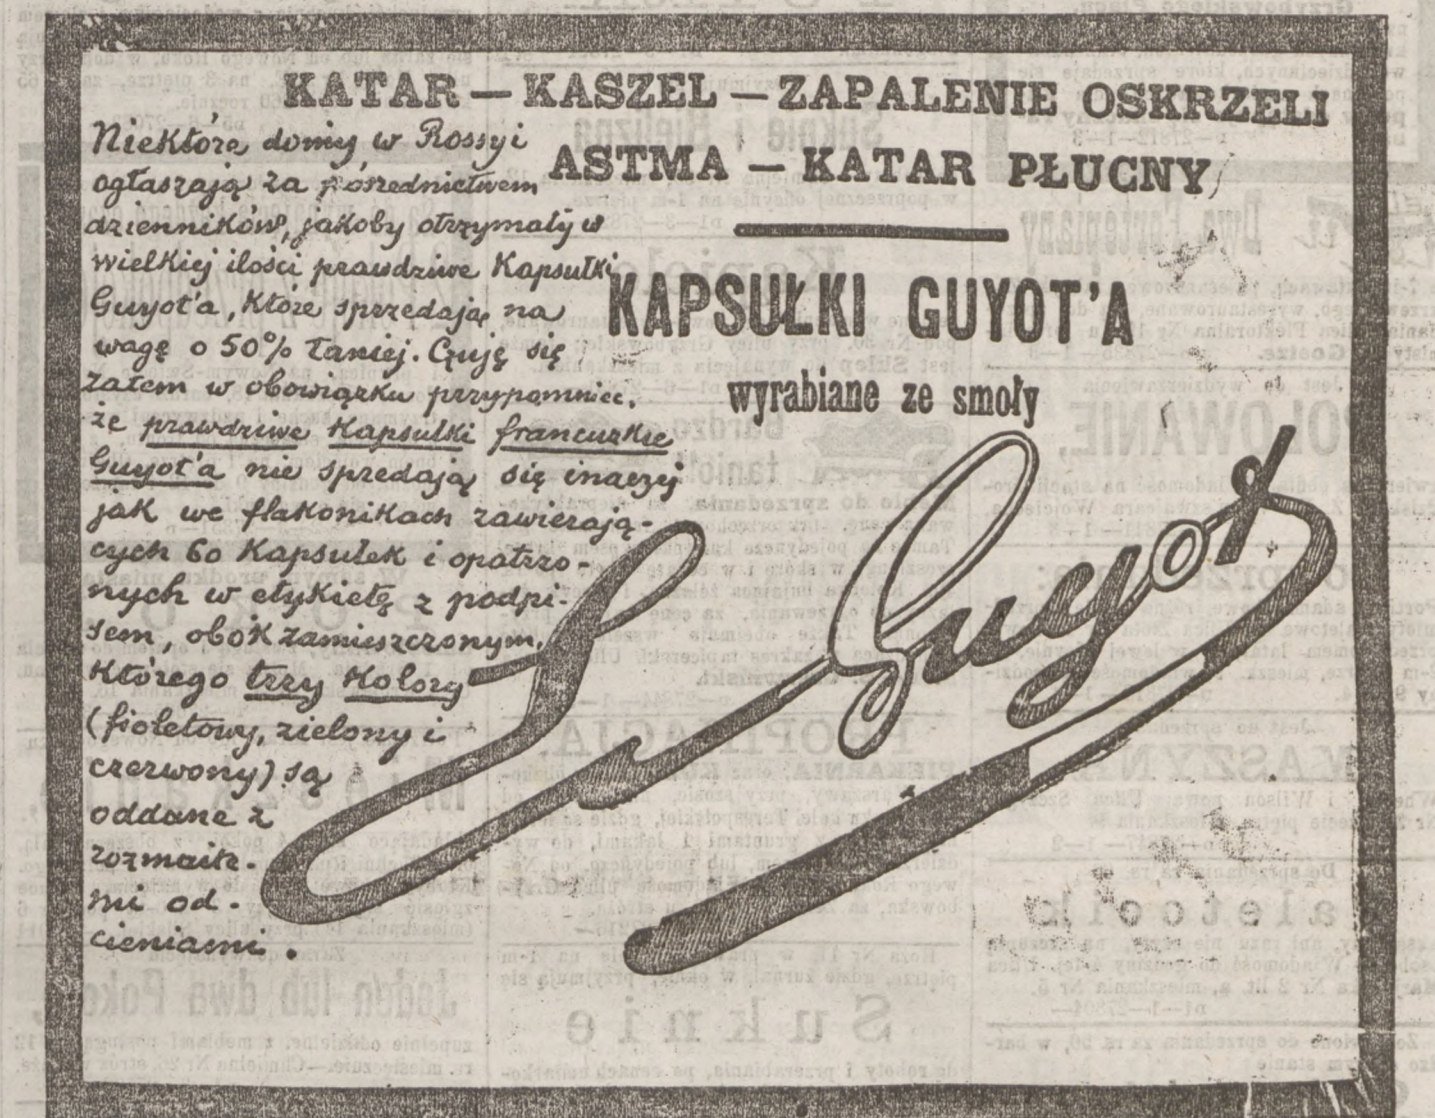 KATAR — KASZEL — ZAPALENIE OSKRZELI
ASTMA — KATAR PŁUCNY
KAPSUŁKI GUYOT'A
wyrabiane ze smoły
Niektóre domy w Rossyi
ogłaszają za pośrednictwem
dzienników, jakoby otrzymały w
wielkiej ilości prawdziwe Kapsułki
Guyot'a, Które sprzedają na
wagę o 50% taniej. Czuję się
zatem w obowiązku przypomnieć.
że prawdziwe Kapsulki francuzkie
Guyot'a nie spredają się inaczej
jak we flakonikach zawierają-
cych 60 Kapsulek i opatrzo-
nych w etykietę z podpi-
sem, obok zamieszczonym,
Którego trzy Kolory
(fioletowy, zielony i
czerwony) są
oddane z
rozmaite-
mi od-
cieniami.
Guyot